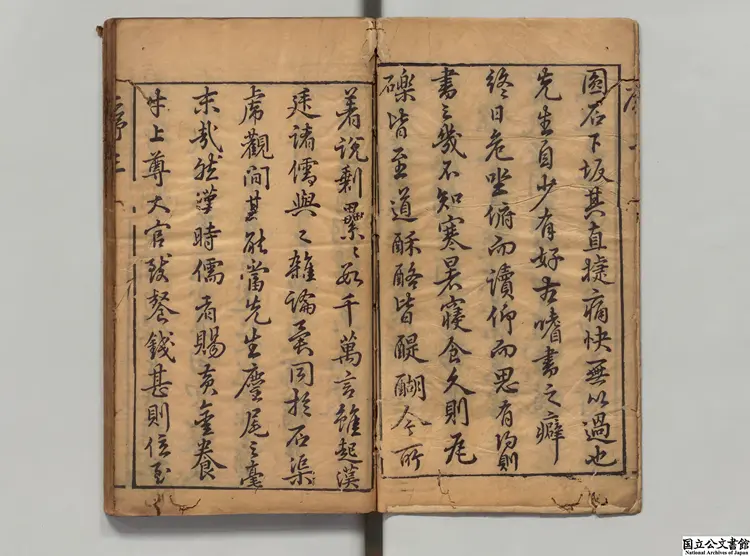 圓石下坂其直捷痛快無以過也
先生自少有好古嗜書之癖
終日危坐俯而讀仰而思有得則
書之幾不知寒暑寢食久則瓦
礫皆至道酥酪皆醍醐今所
著說剩纍〻数千萬言雖起漢
廷諸儒與之雜論異同於石渠
虎觀間其能當先生麈尾之毫
末哉然漢時儒者賜黄金養
牛上尊大官致餐錢甚則位至
序二
国立公文書館
National Archives of Japan